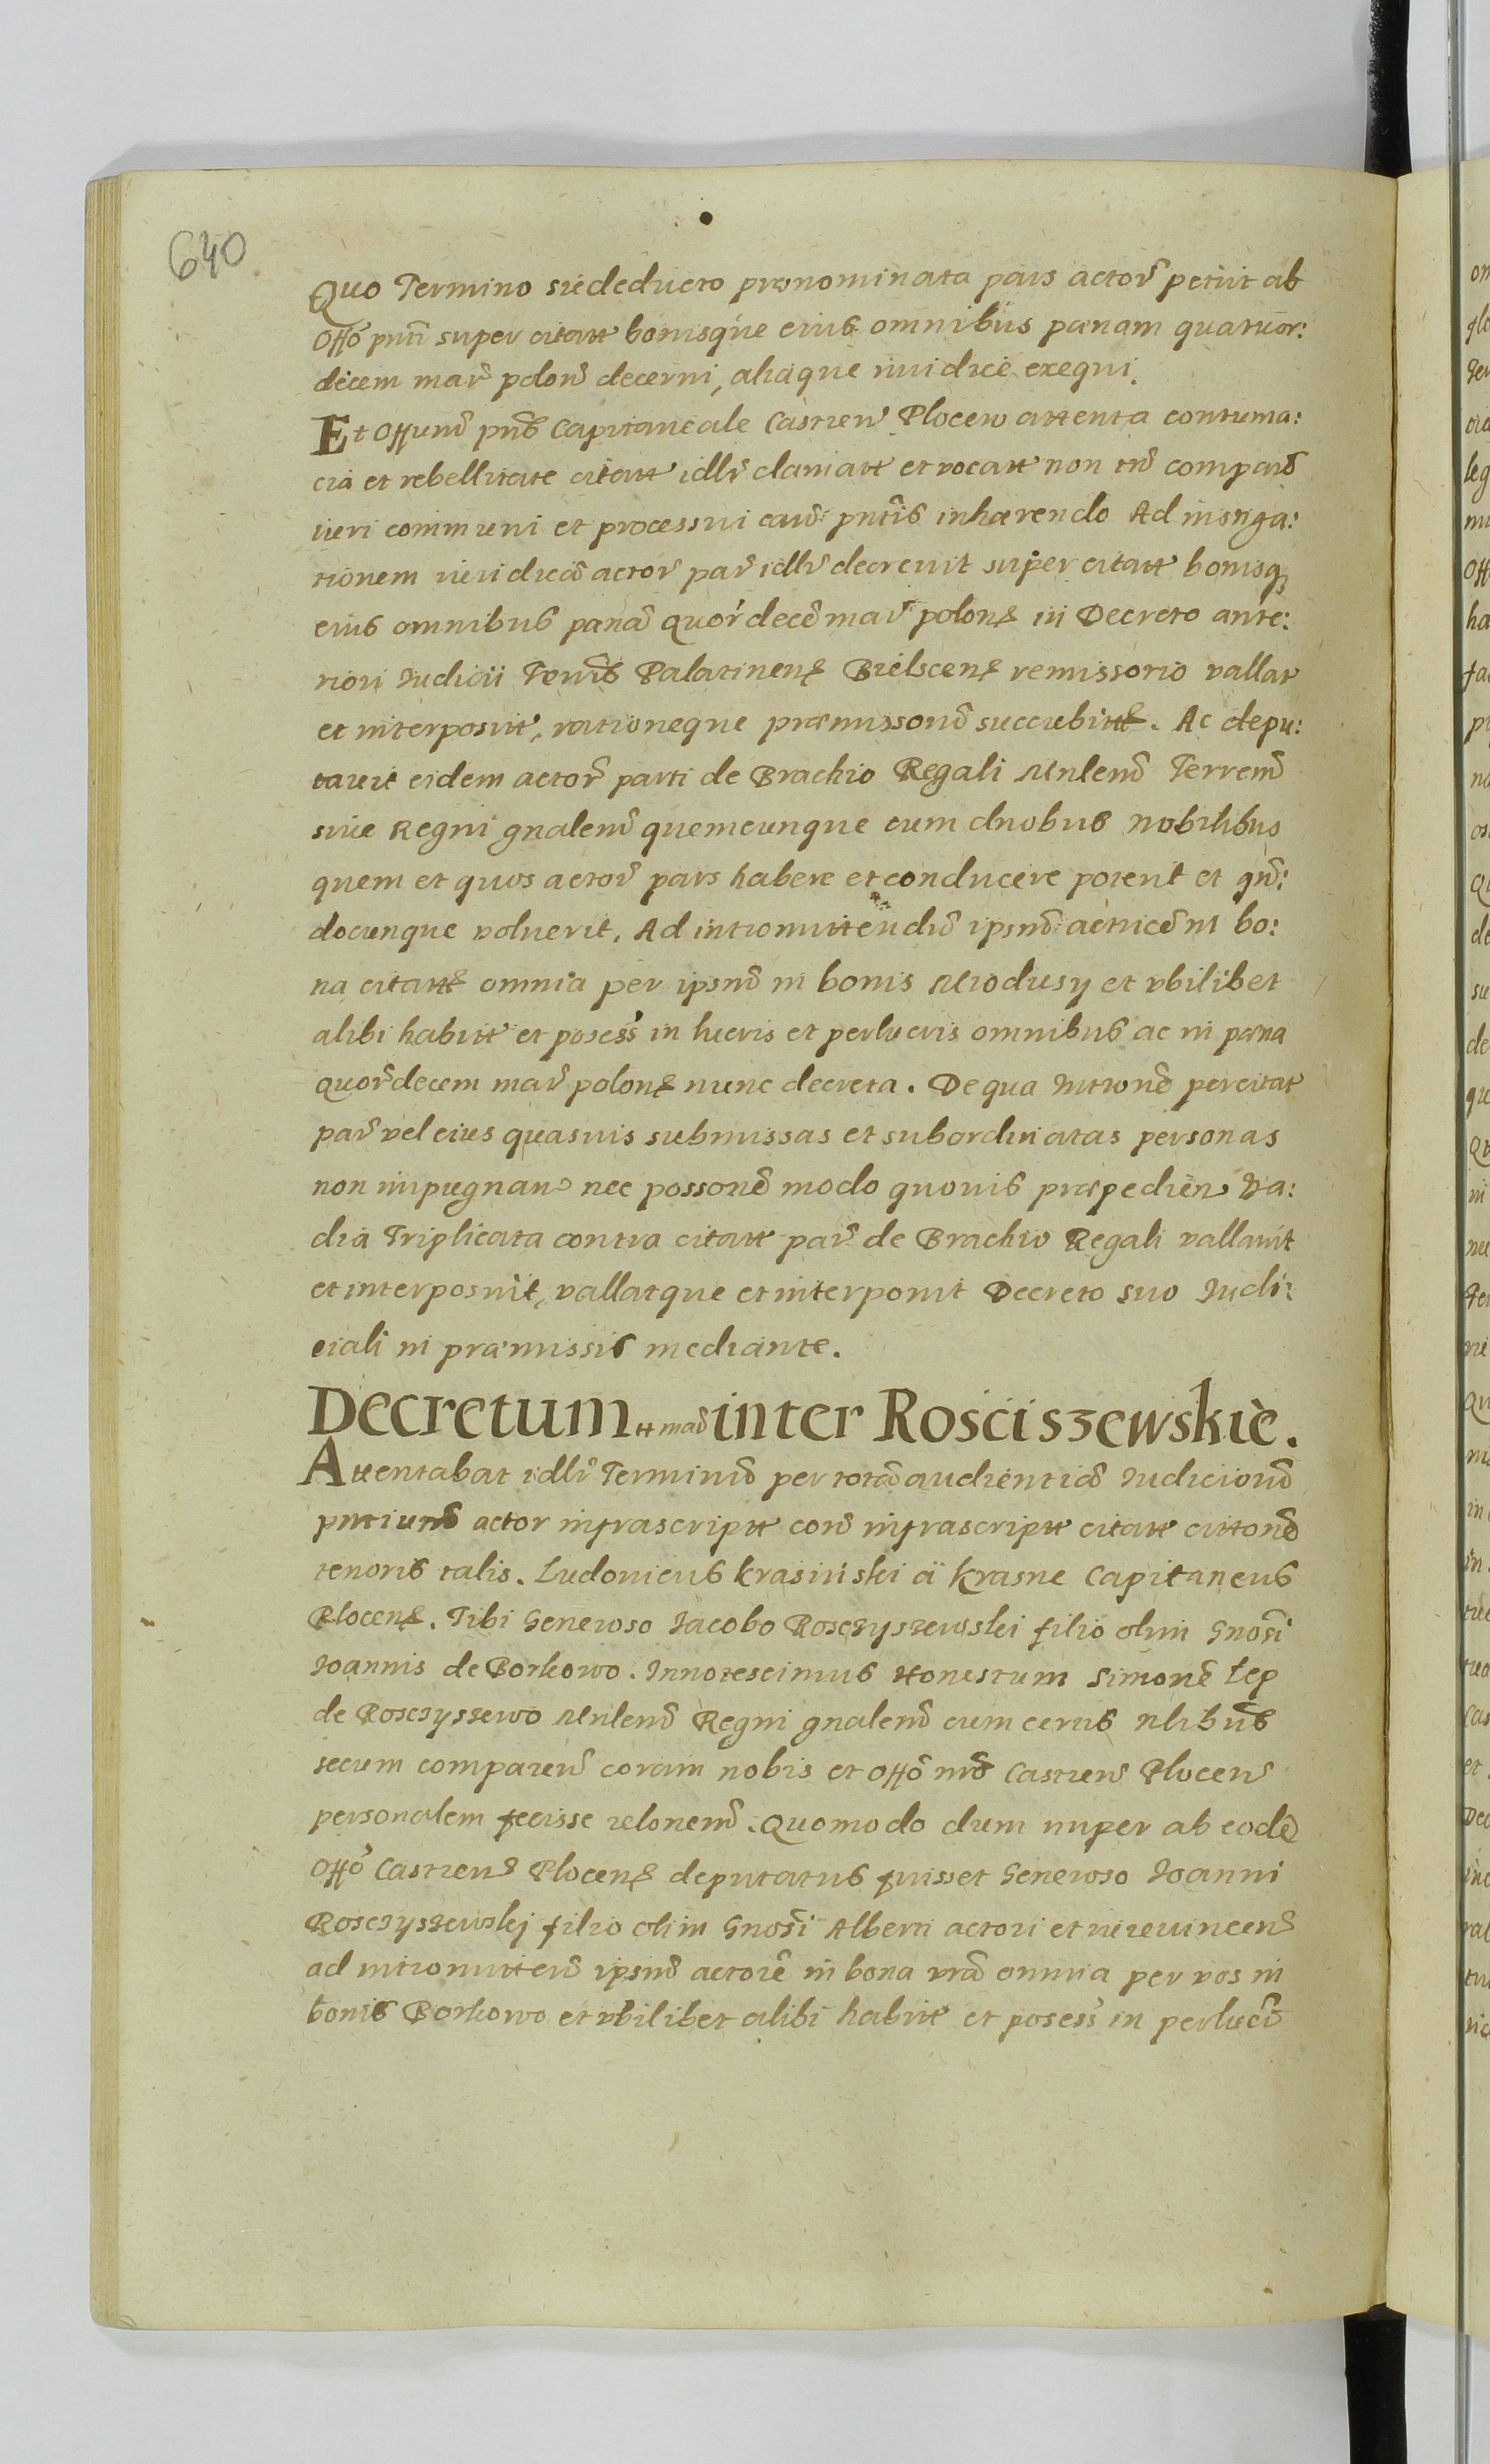 640
Quo Termino sic deducto prænominata pars actor̃ petiit ab
Offo pñti super citatt bonisque eius omnibus pænam quatuor:
decem mar̃ polon̄ decerni, aliaque iuridice exequi.
Et Offiũm pñs Capitaneale Castren̄ Plocen̄ attenta contuma:
cia et rebellitate citatt idllr̃ clamatt et vocatt non tñ comparẽ
iuri communi et processui caus̃ pñtis inhærendo Ad instiga:
tionem iuridicã actor̃ par̃ idllr̃ decrevit super citatt bonisq̃
eius omnibus pænã quor̃decẽ mar̃ polon̄ in Decreto ante:
riori Iudicii Terrĩs Palatinen̄ Bielscen̄ remissorio vallat
et interposuit, rationeque præmissorũ succubitt. Ac depu:
tavit eidem actor̃ parti de Brachio Regali Mñlem̃ Terrem̃
sive Regni gñalem̃ quemcunque cum duobus Nobilibus
quem et quos actor̃ pars habere et conducere poterit et qñ:
docunque voluerit. Ad intromittendũ ipsum̃ actricẽ in bo:
na citatt omnia per ipsum̃ in bonis Miodusy et vbilibet
alibi habitt et posess̃ in lucris et perlucris omnibus ac in pæna
quor̃decem mar̃ polon̄ nunc decreta. De qua Intronẽ per citat
par̃ vel eius quasvis submissas et subordinatas personas
non impugnan̄ nec possonẽ modo quovis præpedien̄ Va:
dia Triplicata contra citatt par̃ de Brachio Regali vallavit
et interposuit, vallatque et interponit Decreto suo Iudi:
ciali in præmissis mediante.
Decretum inter Rościszewskie.
Attentabat idllr̃ Terminũ per totã audientiã Iudiciorũ
pñtiũm actor infrascriptt contr̃ infrascriptt citatt cittonẽ
tenoris talis. Ludovicus Krasiński a Krasne Capitaneus
Plocen̄. Tibi Generoso Iacobo Rosczyszewski filio olim Gnosĩ
Ioannis de Borkowo. Innotescimus Honestum Simonẽ Lep
de Rosczyszewo Mñlem̃ Regni gñalem̃ cum certis Nlibũs
secum comparen̄ coram nobis et Offo nrõ Castren̄ Plocen̄
personalem fecisse relonem̃. Quomodo dum nuper ab eodẽ
Offo Castren̄ Plocen̄ deputatus fuisset Generoso Ioanni
Rosczyszewskj filio olim Gnosĩ Alberti actori et iurevincen̄
ad intromitten̄ ipsum̃ actorẽ in bona vrã omnia per vos in
bonis Borkowo et vbilibet alibi habitt et posess̃ in perlucr̃